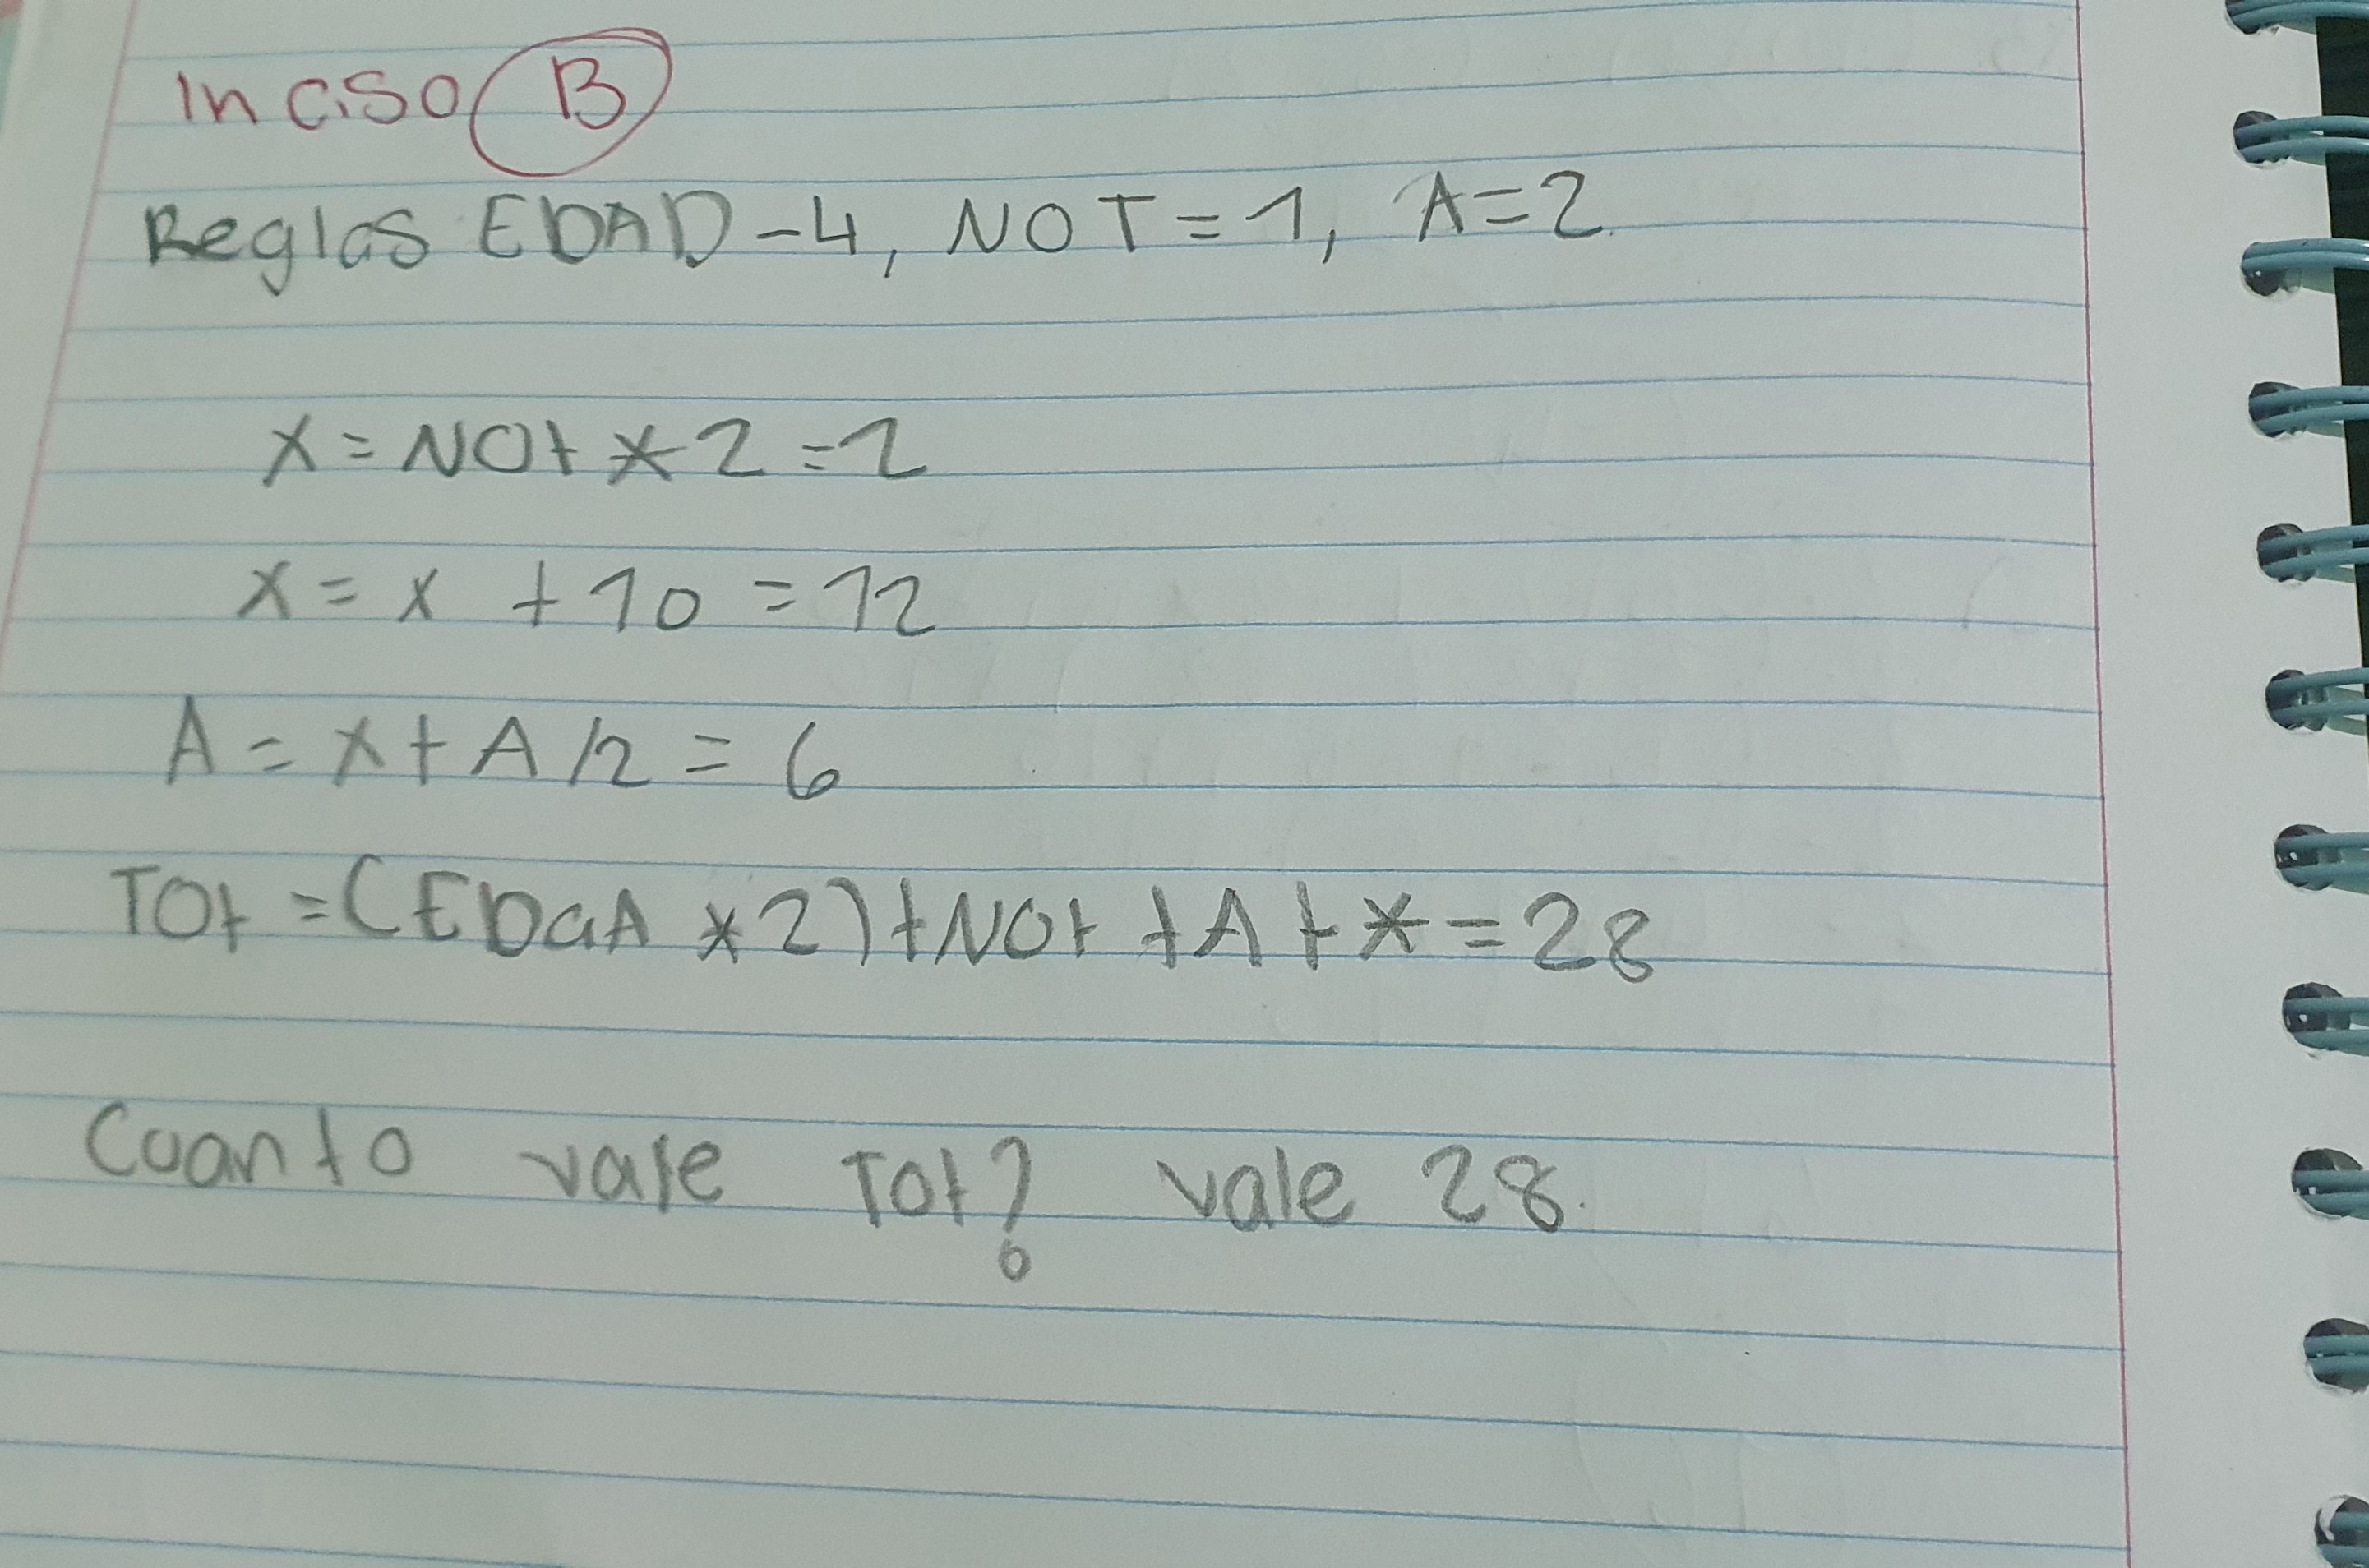 Inciso B
Reglas EDAD-4, NOT=1, A=2.
X=NOt*2=2
X=x +10=12
A=x+A/2=6
TOt=(EDaA*2)+NOt+A+x=28
Cuanto vale Tot? vale 28.